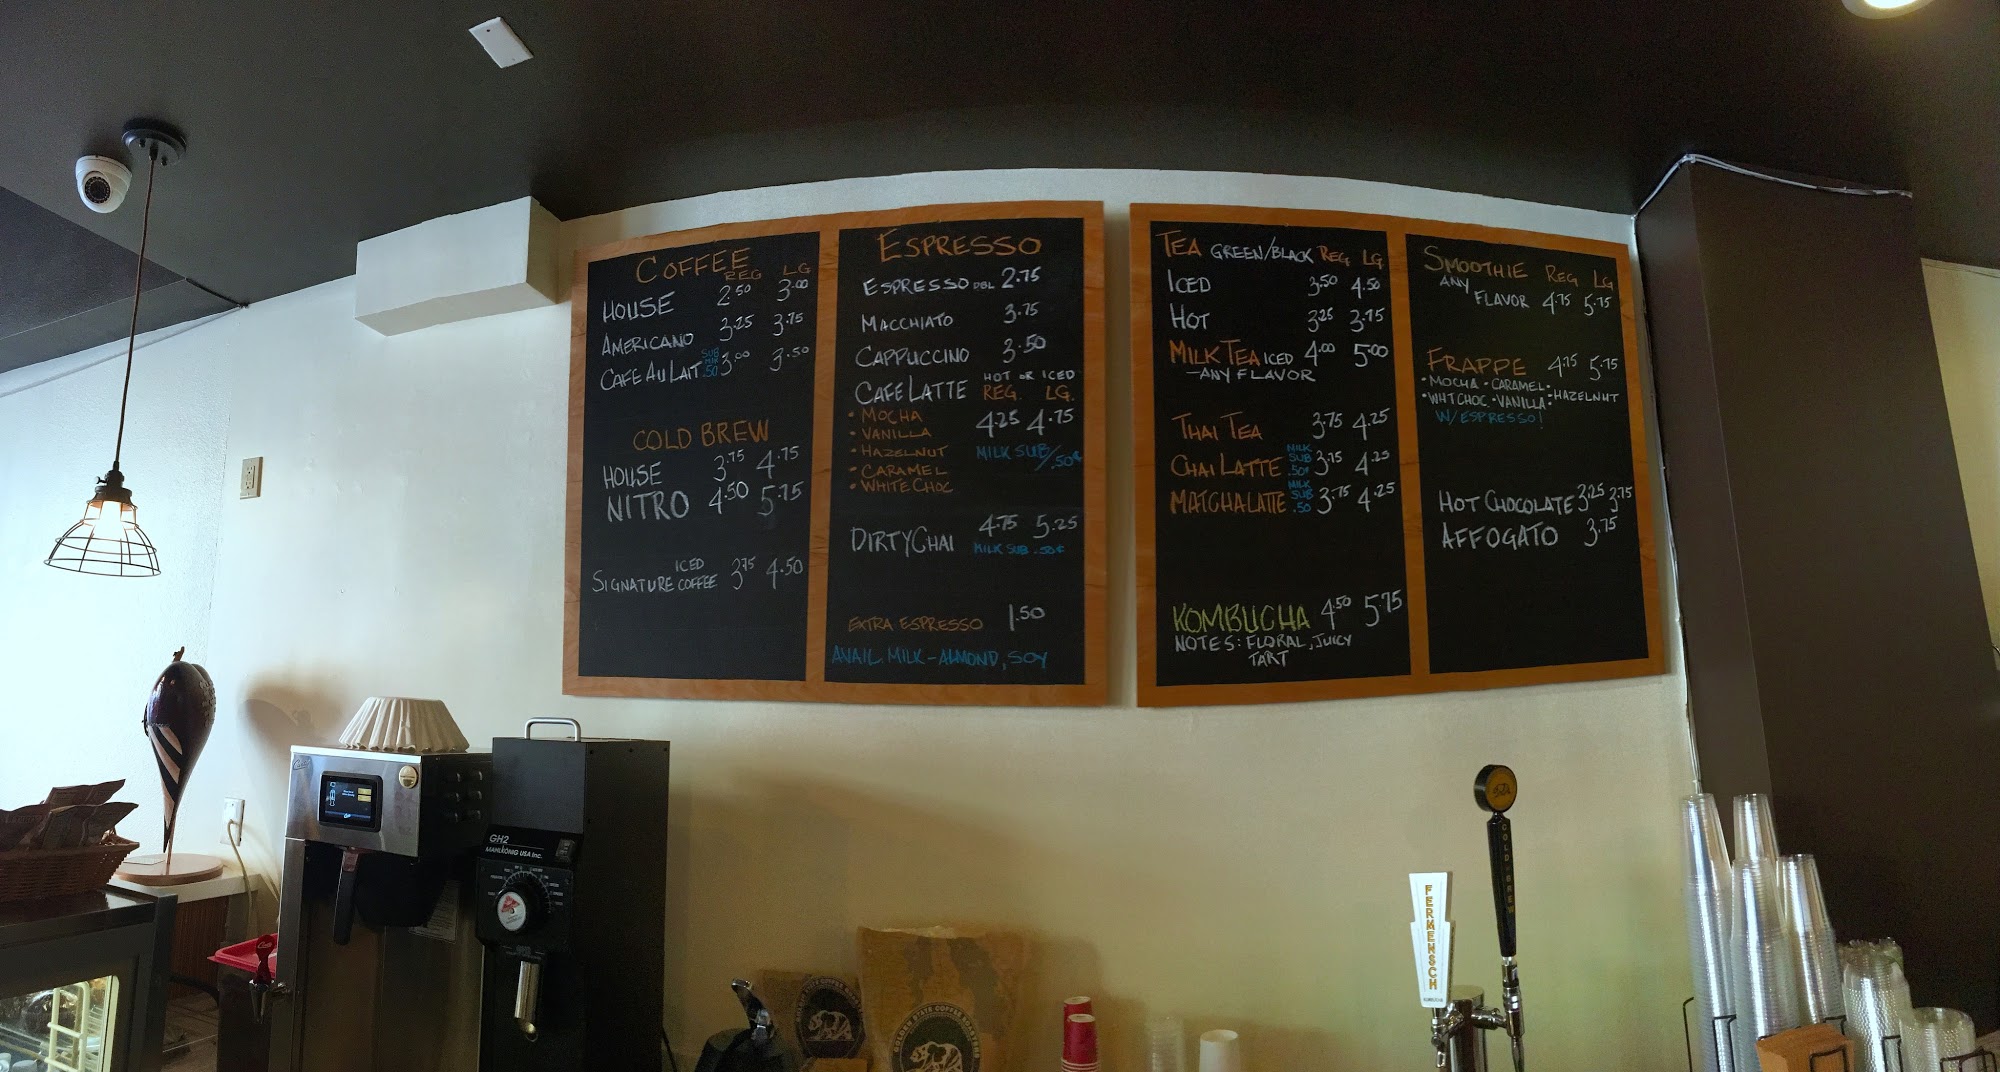 COFFEE
REG LG
HOUSE 2.50 3.00
AMERICANO 3.25 3.75
CAFE AU LAIT SUB MILK .50 3.00 3.50
COLD BREW
HOUSE 3.75 4.75
NITRO 4.50 5.75
SIGNATURE ICED COFFEE 3.75 4.50
ESPRESSO
ESPRESSO DBL 2.75
MACCHIATO 3.75
CAPPUCCINO 3.50
HOT OR ICED
CAFE LATTE REG. LG.
• MOCHA 4.25 4.75
• VANILLA
• HAZELNUT MILK SUB/.50¢
• CARAMEL
• WHITE CHOC
DIRTY CHAI 4.75 5.25
MILK SUB .50¢
EXTRA ESPRESSO 1.50
AVAIL. MILK - ALMOND, SOY
TEA GREEN/BLACK REG LG
ICED 3.50 4.50
HOT 3.25 3.75
MILK TEA ICED 4.00 5.00
- ANY FLAVOR
THAI TEA 3.75 4.25
CHAI LATTE MILK SUB .50¢ 3.75 4.25
MATCHA LATTE MILK SUB .50 3.75 4.25
KOMBUCHA 4.50 5.75
NOTES: FLORAL, JUICY
TART
SMOOTHIE REG LG
ANY
FLAVOR 4.75 5.75
FRAPPE 4.75 5.75
• MOCHA • CARAMEL •
• WHT CHOC. • VANILLA • HAZELNUT
W/ ESPRESSO!
HOT CHOCOLATE 3.25 3.75
AFFOGATO 3.75
GH2
MAHLKÖNIG USA Inc.
GOLDEN STATE COFFEE ROASTERS
FERMENSCH
COLD-BREW